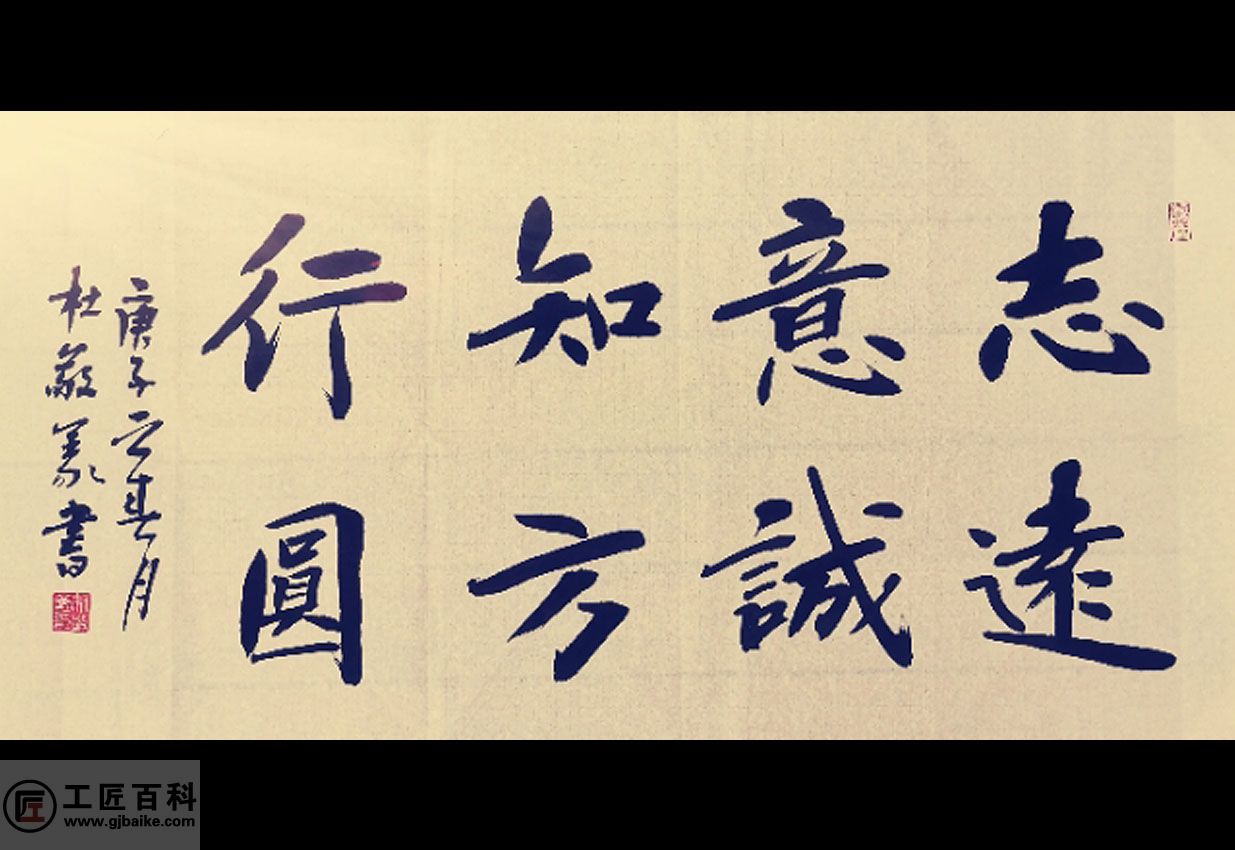 志遠
意誠
知方
行圓
庚子之春月
杜敬義書
工匠百科
www.gjbaike.com